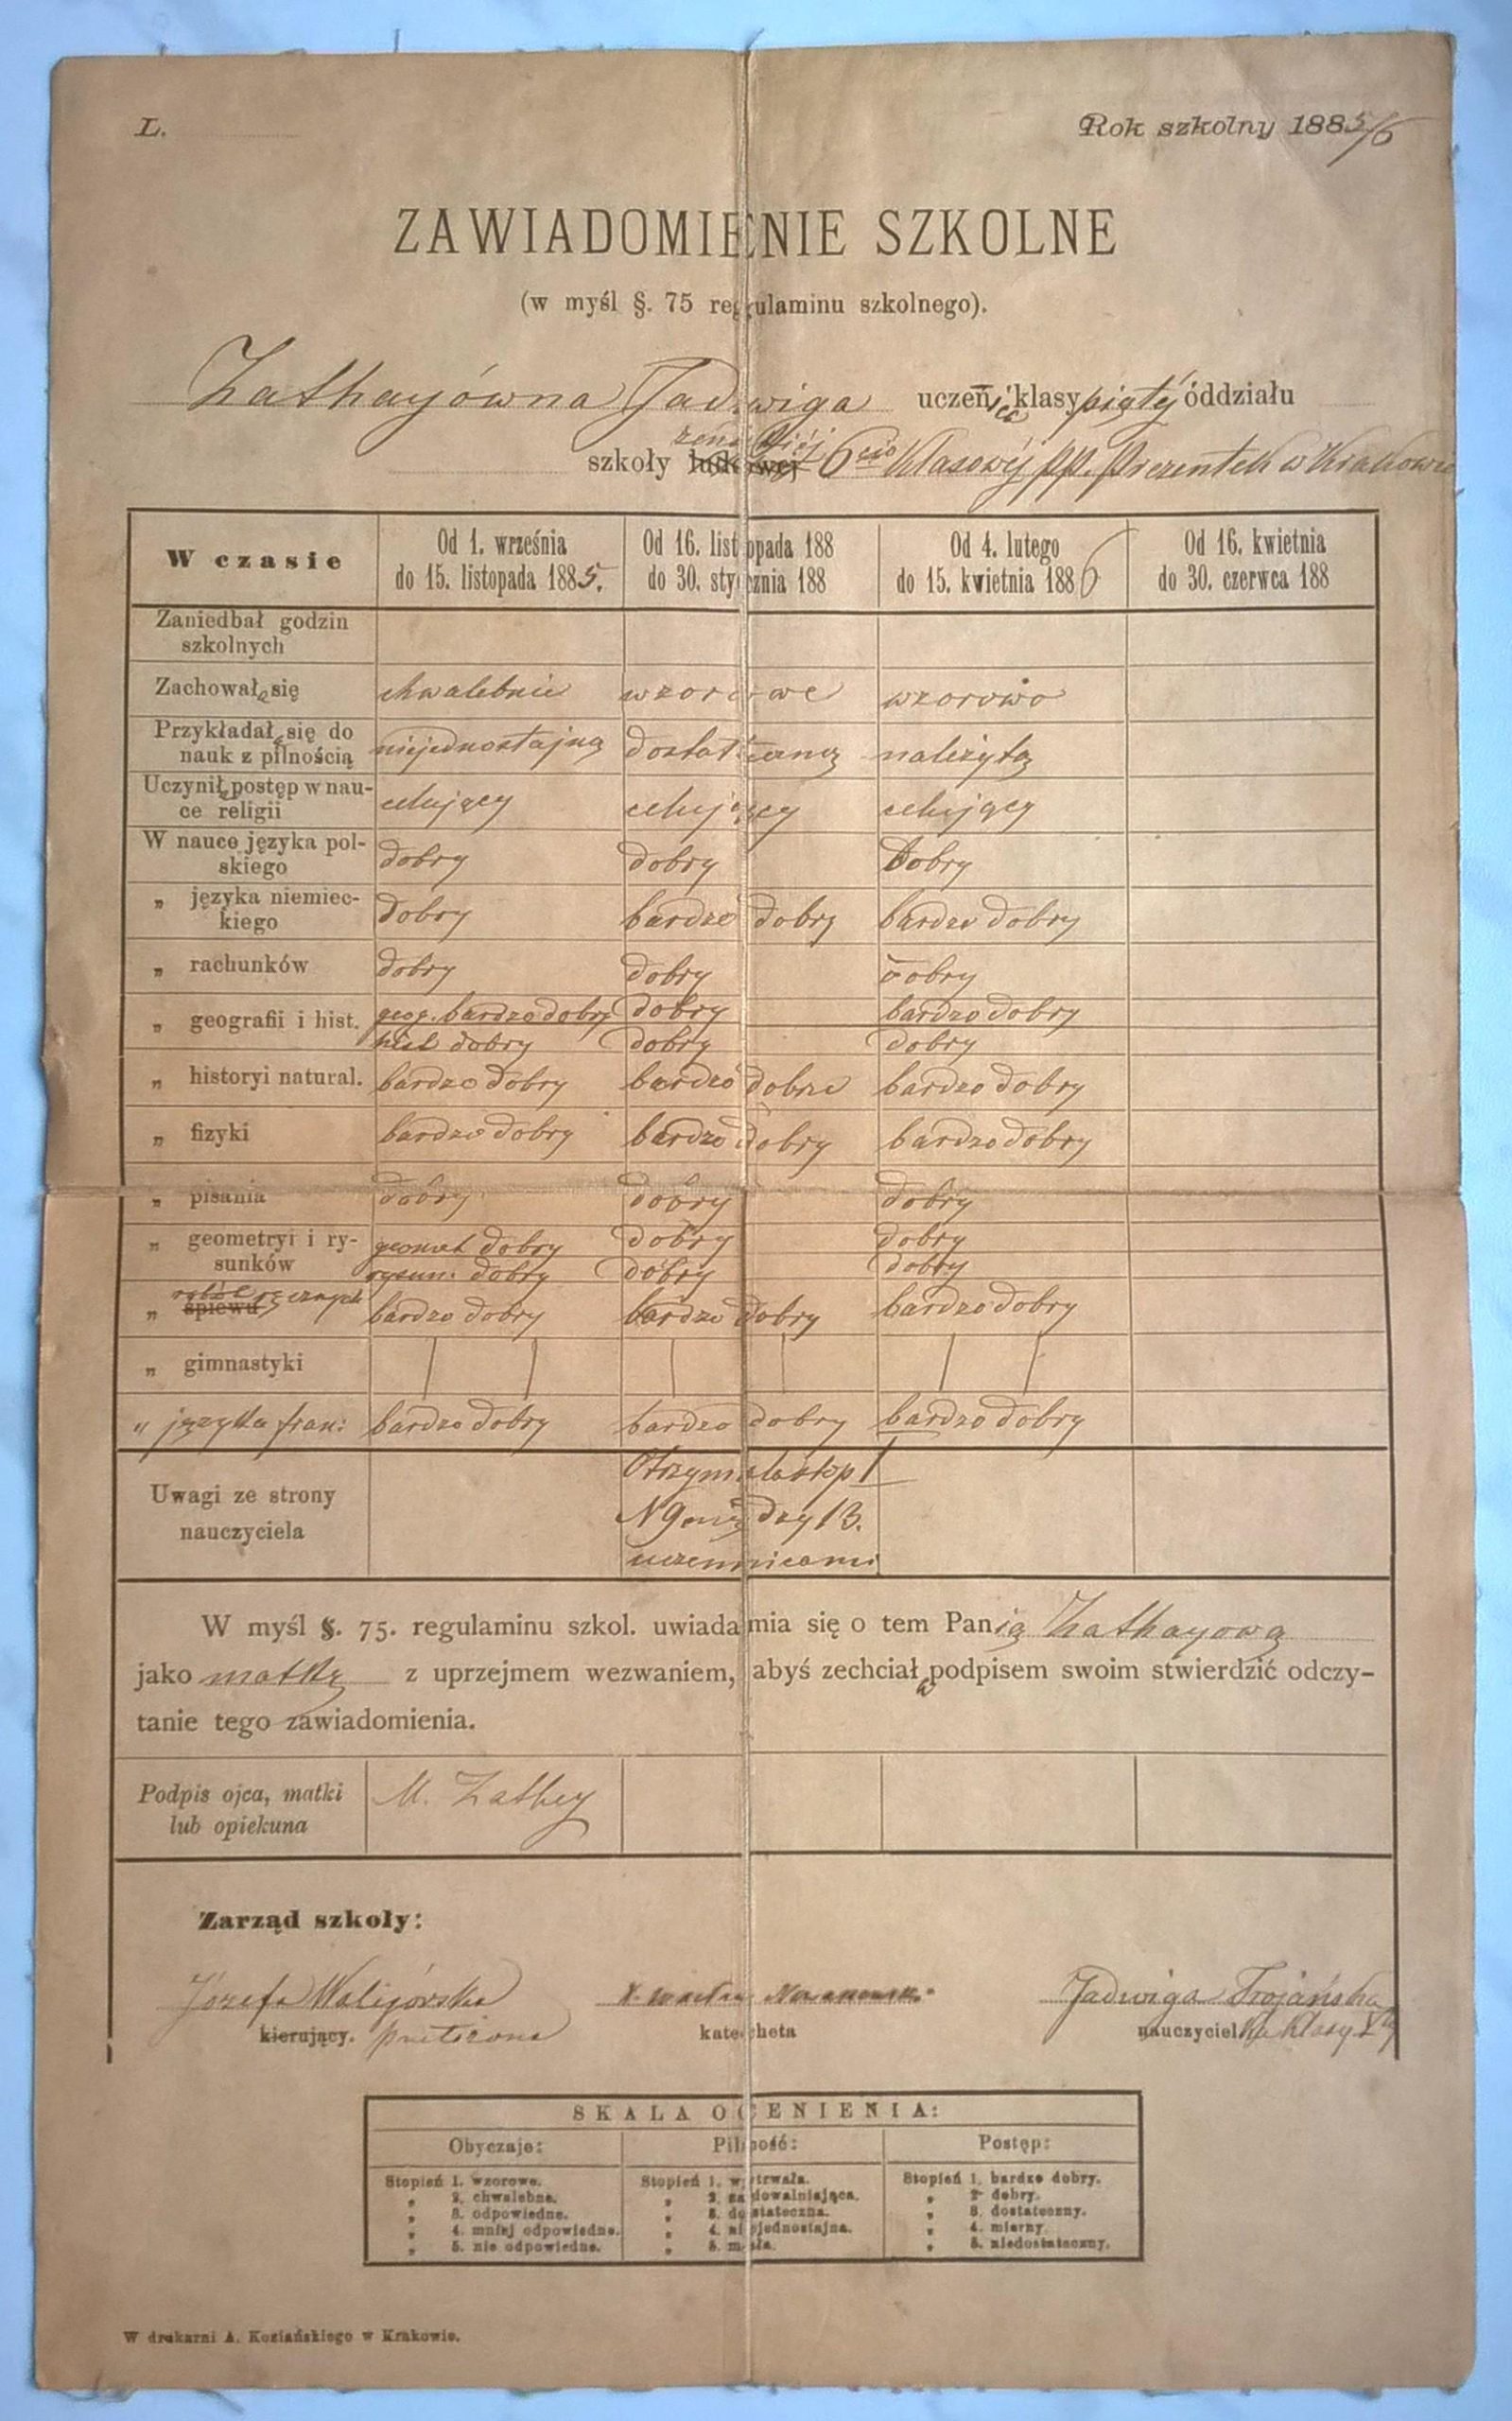 L. Rok szkolny 1885/6
ZAWIADOMIENIE SZKOLNE
(w myśl §. 75 regulaminu szkolnego).
Zathayówna Jadwiga uczeńica klasy piątéj oddziału
szkoły ludowej żeńskiéj 6cio klasowéj pp. Prezentek w Krakowie
W czasie Od 1. września do 15. listopada 1885. Od 16. listopada 188 do 30. stycznia 188 Od 4. lutego do 15. kwietnia 1886 Od 16. kwietnia do 30. czerwca 188
Zaniedbał godzin szkolnych
Zachowałę się chwalebnie wzorowe wzorowo
Przykładała się do nauk z pilnością niejednostajną dostateczną należytą
Uczyniła postęp w nauce religii celujący celujący celujący
W nauce języka polskiego dobry dobry dobry
„ języka niemieckiego dobry bardzo dobry bardzo dobry
„ rachunków dobry dobry dobry
„ geografii i hist. geog. bardzo dobry dobry bardzo dobry
hist dobry dobry dobry
„ historyi natural. bardzo dobry bardzo dobrze bardzo dobry
„ fizyki bardzo dobry bardzo dobry bardzo dobry
„ pisania dobry dobry dobry
„ geometryi i rysunków geomet dobry dobry dobry
rysun. dobry dobry dobry
„ śpiewu robót ręcznych bardzo dobry bardzo dobry bardzo dobry
„ gimnastyki
„ języka fran: bardzo dobry bardzo dobry bardzo dobry
Uwagi ze strony nauczyciela
Otrzymała stop I
N 9 między 13.
uczennicami
W myśl §. 75. regulaminu szkol. uwiadamia się o tem Panią Zathayową
jako matkę z uprzejmem wezwaniem, abyś zechciała podpisem swoim stwierdzić odczy-
tanie tego zawiadomienia.
Podpis ojca, matki lub opiekuna M. Zathey
Zarząd szkoły:
Józefa Waligórska Jadwiga Trojańska
kierujący. przełożona katecheta nauczycielka klasy Vtéj
SKALA OCENIENIA:
Obyczaje: Pilność: Postęp:
Stopień 1. wzorowe. Stopień 1. wytrwała. Stopień 1. bardzo dobry.
„ 2. chwalebne. „ 2. zadowalniająca. „ 2. dobry.
„ 3. odpowiedne. „ 3. dostateczna. „ 3. dostateczny.
„ 4. mniej odpowiedne. „ 4. niejednostajna. „ 4. mierny.
„ 5. nie odpowiedne. „ 5. mała. „ 5. niedostateczny.
W drukarni A. Koziańskiego w Krakowie.